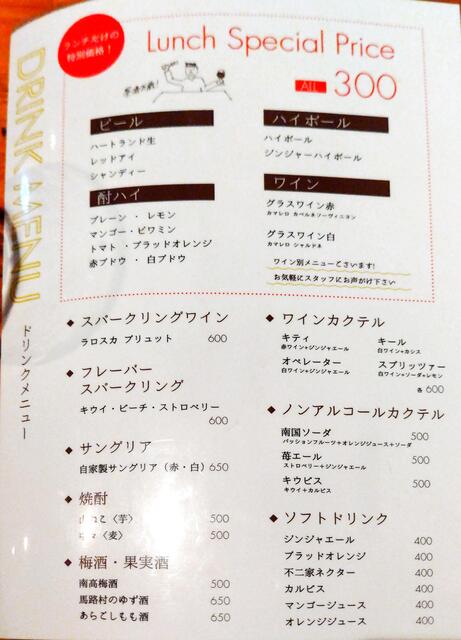 DRINK MENU
ドリンクメニュー
ランチだけの
特別価格！
Lunch Special Price
ALL 300
ビール
ハートランド生
レッドアイ
シャンディー
酎ハイ
プレーン ・ レモン
マンゴー・ビワミン
トマト ・ブラッドオレンジ
赤ブドウ ・ 白ブドウ
ハイボール
ハイボール
ジンジャーハイボール
ワイン
グラスワイン赤
カマレロ カベルネソーヴィニヨン
グラスワイン白
カマレロ シャルドネ
ワイン別メニューございます!
お気軽にスタッフにお声がけ下さい
◆ スパークリングワイン
ラロスカ ブリュット 600
◆ フレーバー
スパークリング
キウイ・ピーチ・ストロベリー
600
◆ サングリア
自家製サングリア（赤・白）650
◆ 焼酎
〈芋〉 500
〈麦〉 500
◆ 梅酒・果実酒
南高梅酒 500
馬路村のゆず酒 650
あらごしもも酒 650
◆ ワインカクテル
キティ
赤ワイン+ジンジャエール
キール
白ワイン+カシス
オペレーター
白ワイン+ジンジャエール
スプリッツァー
白ワイン+ソーダ+レモン
各 600
◆ ノンアルコールカクテル
南国ソーダ 500
パッションフルーツ+オレンジジュース+ソーダ
苺エール 500
ストロベリー+ジンジャエール
キウピス 500
キウイ+カルピス
◆ ソフトドリンク
ジンジャエール 400
ブラッドオレンジ 400
不二家ネクター 400
カルピス 400
マンゴージュース 400
オレンジジュース 400